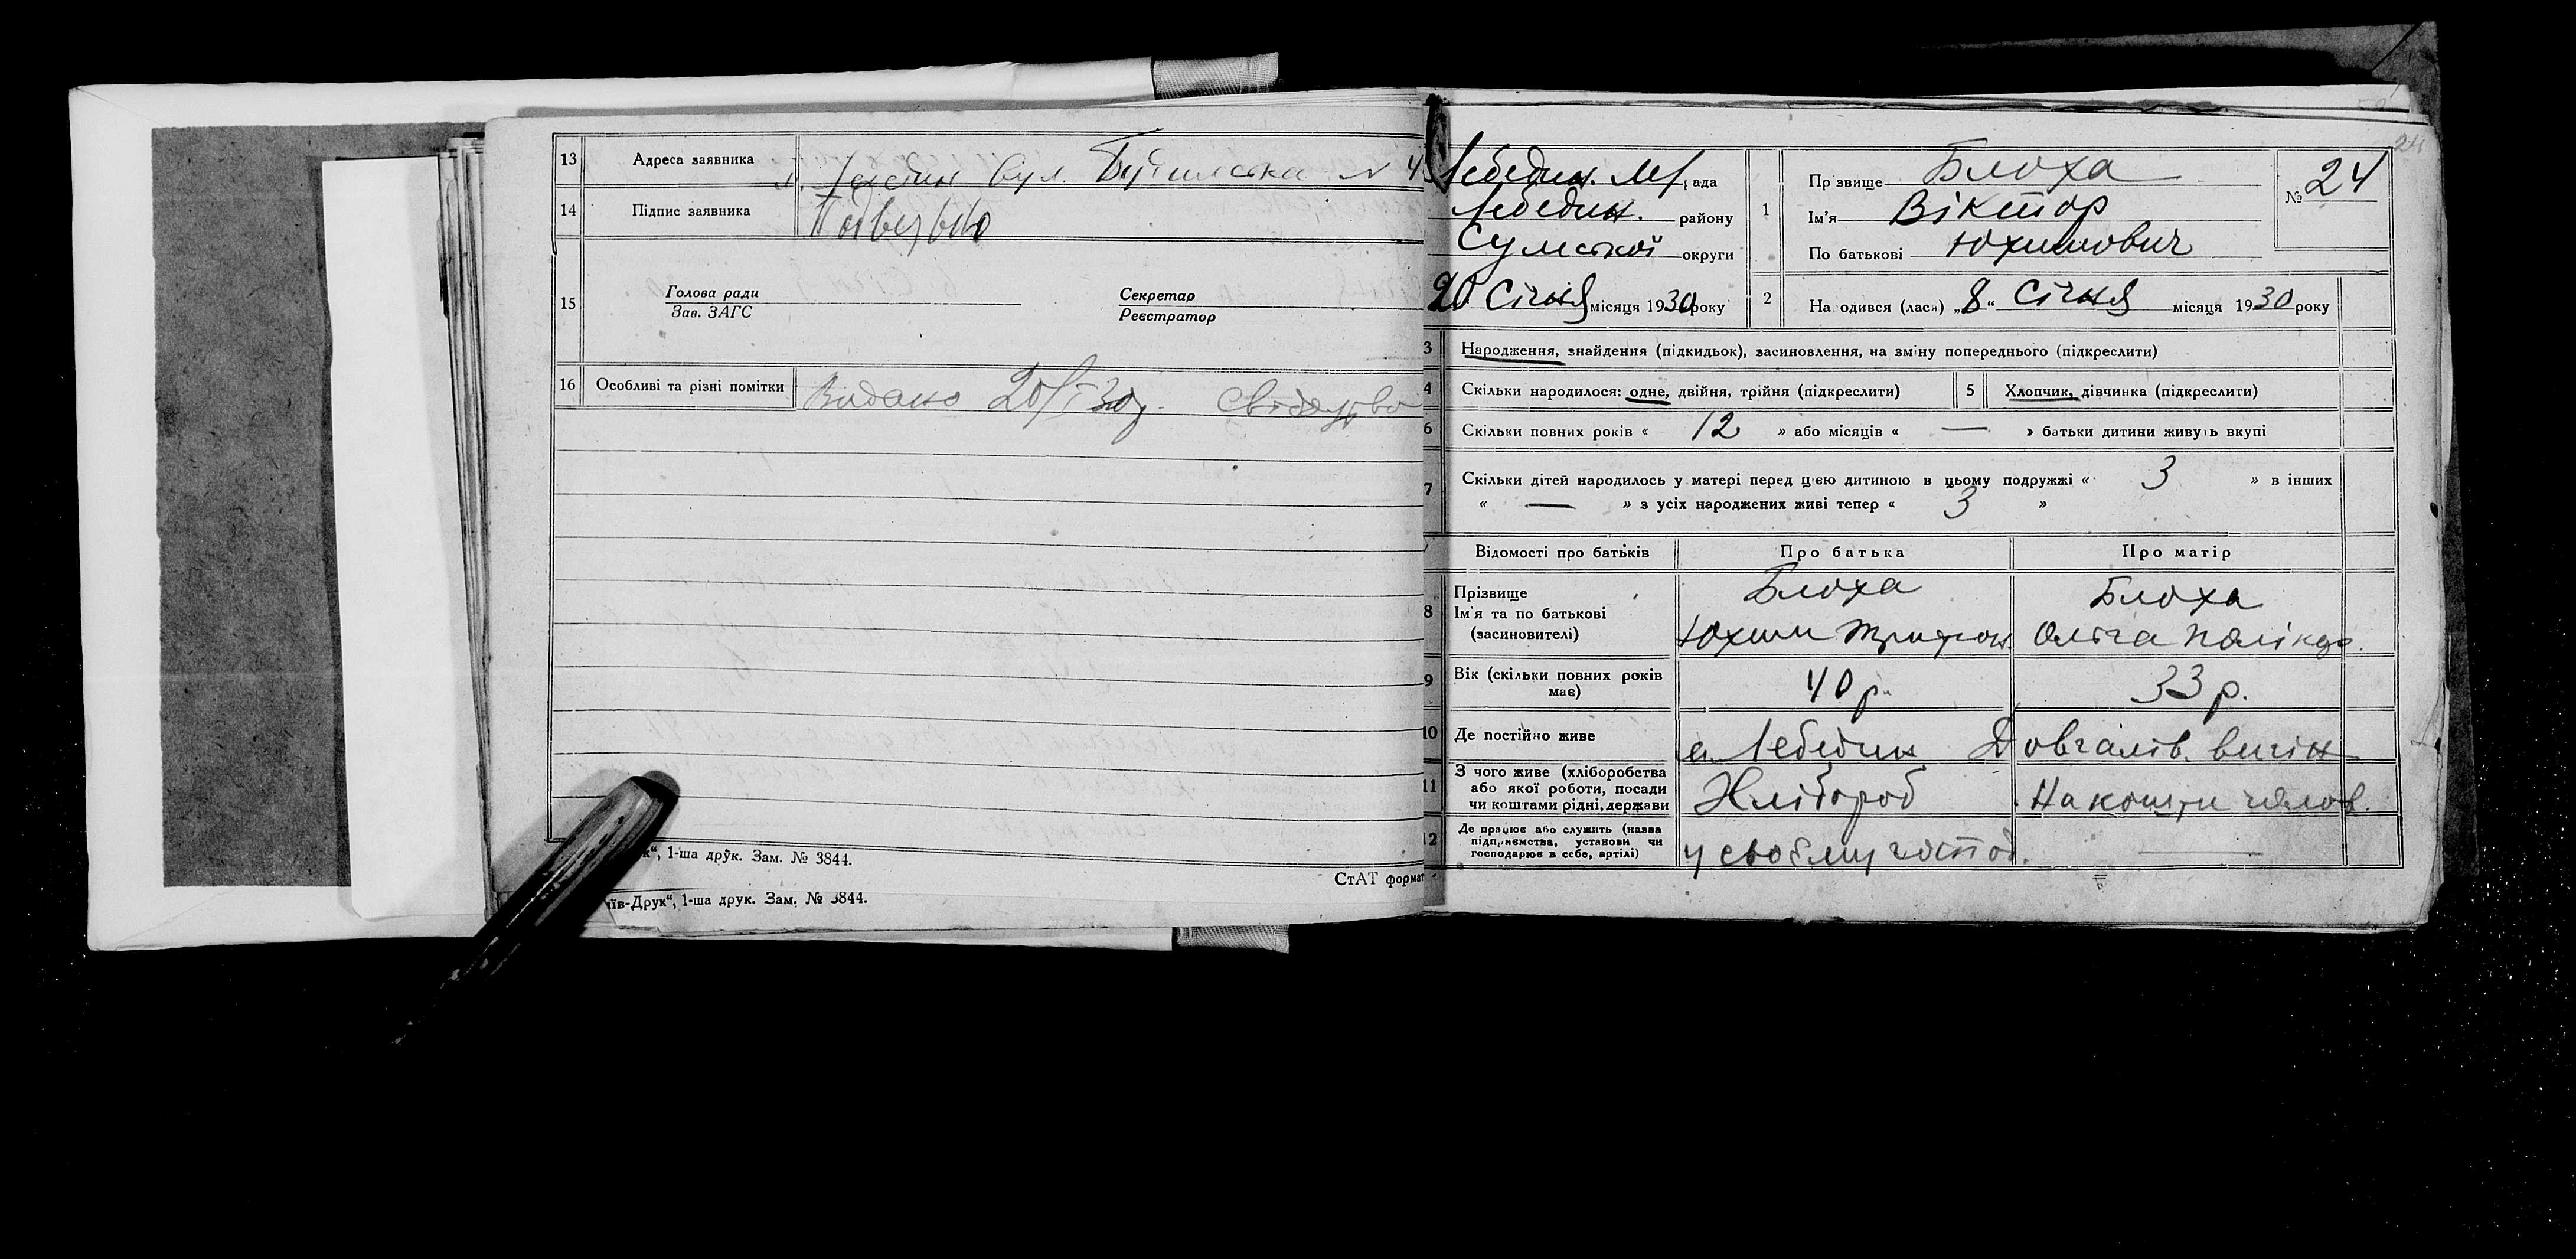 13 Адреса заявника м. Лебедин вул. Бутимська № 4
14 Підпис заявника
15 Голова ради
Зав. ЗАГС
Секретар
Реєстратор
16 Особливі та різні помітки Видано 20/I 30р. Свідоцтво
к“, 1-ша друк. Зам. № 3844.
СтАТ формат
їв-Друк“, 1-ша друк. Зам. № 3844.
24
Лебедин. М/рада
Лебедин. району
Сумської округи
20 Січня місяця 1930 року
1 Прізвище Блоха
Ім'я Віктор
По батькові Юхимович
№ 24
2 На одився (лася) „8“ Січня місяця 1930 року
3 Народження, знайдення (підкидьок), засиновлення, на зміну попереднього (підкреслити)
4 Скільки народилося: одне, двійня, трійня (підкреслити) 5 Хлопчик, дівчинка (підкреслити)
6 Скільки повних років « 12 » або місяців « — » батьки дитини живуть вкупі
7 Скільки дітей народилось у матері перед цією дитиною в цьому подружжі « 3 » в інших
« — » з усіх народжених живі тепер « 3 »
Відомості про батьків Про батька Про матір
8 Прізвище Блоха Блоха
Ім'я та по батькові
(засиновителі) Юхим Трифон. Ольга Полікар.
9 Вік (скільки повних років
має) 40 р. 33 р.
10 Де постійно живе м. Лебедин Довгалів. вигін
11 З чого живе (хліборобства
або якої роботи, посади
чи коштами рідні, держави Хлібороб На кошти чолов.
12 Де працює або служить (назва
підприємства, установи чи
господарює в себе, артілі) у своєму господ. —